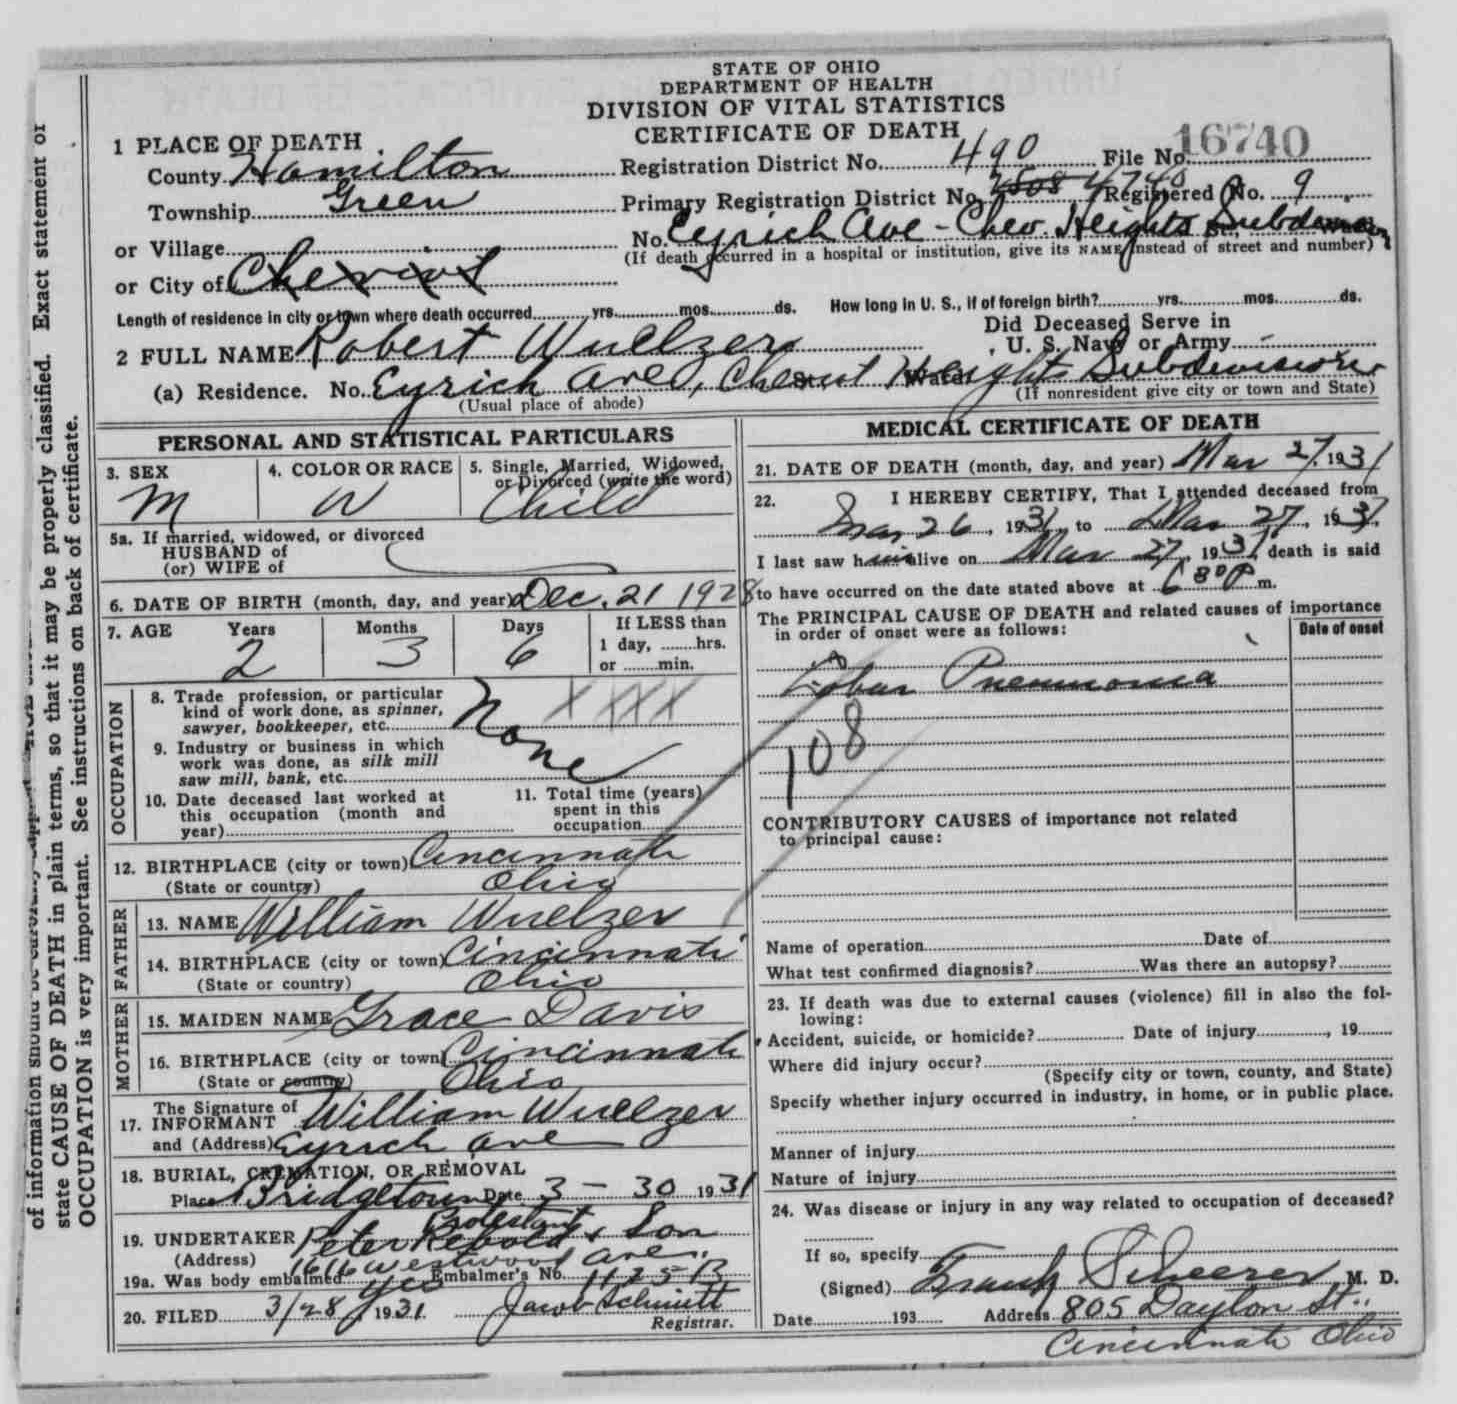 STATE OF OHIO
DEPARTMENT OF HEALTH
DIVISION OF VITAL STATISTICS
CERTIFICATE OF DEATH
1 PLACE OF DEATH
County Hamilton Registration District No. 490 File No. 16740
Township Green Primary Registration District No. 4740 Registered No. 9
or Village No. Eyrich Ave - Chev. Heights Subdivision
(If death occurred in a hospital or institution, give its NAME instead of street and number)
or City of Cheviot
Length of residence in city or town where death occurred yrs. mos. ds. How long in U. S., if of foreign birth? yrs. mos. ds.
2 FULL NAME Robert Wuelzer Did Deceased Serve in U. S. Navy or Army
(a) Residence. No. Eyrich Ave, Cheviot Heights Subdivision
(Usual place of abode) (If nonresident give city or town and State)
PERSONAL AND STATISTICAL PARTICULARS
3. SEX M
4. COLOR OR RACE W
5. Single, Married, Widowed, or Divorced (write the word) Child
5a. If married, widowed, or divorced
HUSBAND of
(or) WIFE of
6. DATE OF BIRTH (month, day, and year) Dec. 21 1928
7. AGE Years 2 Months 3 Days 6 If LESS than
1 day, hrs.
or min.
OCCUPATION
8. Trade profession, or particular
kind of work done, as spinner,
sawyer, bookkeeper, etc. None
9. Industry or business in which
work was done, as silk mill
saw mill, bank, etc.
10. Date deceased last worked at
this occupation (month and
year)
11. Total time (years)
spent in this
occupation
12. BIRTHPLACE (city or town) Cincinnati
(State or country) Ohio
FATHER
13. NAME William Wuelzer
14. BIRTHPLACE (city or town) Cincinnati
(State or country) Ohio
MOTHER
15. MAIDEN NAME Grace Davis
16. BIRTHPLACE (city or town) Cincinnati
(State or country) Ohio
17. The Signature of
INFORMANT William Wuelzer
and (Address) Eyrich Ave
18. BURIAL, CREMATION, OR REMOVAL
Place Bridgetown Date 3-30 1931
Protestant
19. UNDERTAKER Peter Rebold & Son
(Address) 1616 Westwood Ave.
19a. Was body embalmed yes Embalmer's No. 1125-B
20. FILED 3/28, 1931. Jacob Schmitt
Registrar.
MEDICAL CERTIFICATE OF DEATH
21. DATE OF DEATH (month, day, and year) Mar 27, 1931
22. I HEREBY CERTIFY, That I attended deceased from
Mar 26, 1931, to Mar 27, 1931.
I last saw him alive on Mar 27, 1931, death is said
to have occurred on the date stated above at m.
The PRINCIPAL CAUSE OF DEATH and related causes of importance
in order of onset were as follows: Date of onset
Lobar Pneumonia
108
CONTRIBUTORY CAUSES of importance not related
to principal cause:
Name of operation Date of
What test confirmed diagnosis? Was there an autopsy?
23. If death was due to external causes (violence) fill in also the fol-
lowing:
Accident, suicide, or homicide? Date of injury, 19
Where did injury occur?
(Specify city or town, county, and State)
Specify whether injury occurred in industry, in home, or in public place.
Manner of injury
Nature of injury
24. Was disease or injury in any way related to occupation of deceased?
If so, specify
(Signed) Frank Scheerer M. D.
Date 193 Address 805 Dayton St.,
Cincinnati Ohio
state CAUSE OF DEATH in plain terms, so that it may be properly classified. Exact statement of
OCCUPATION is very important. See instructions on back of certificate.